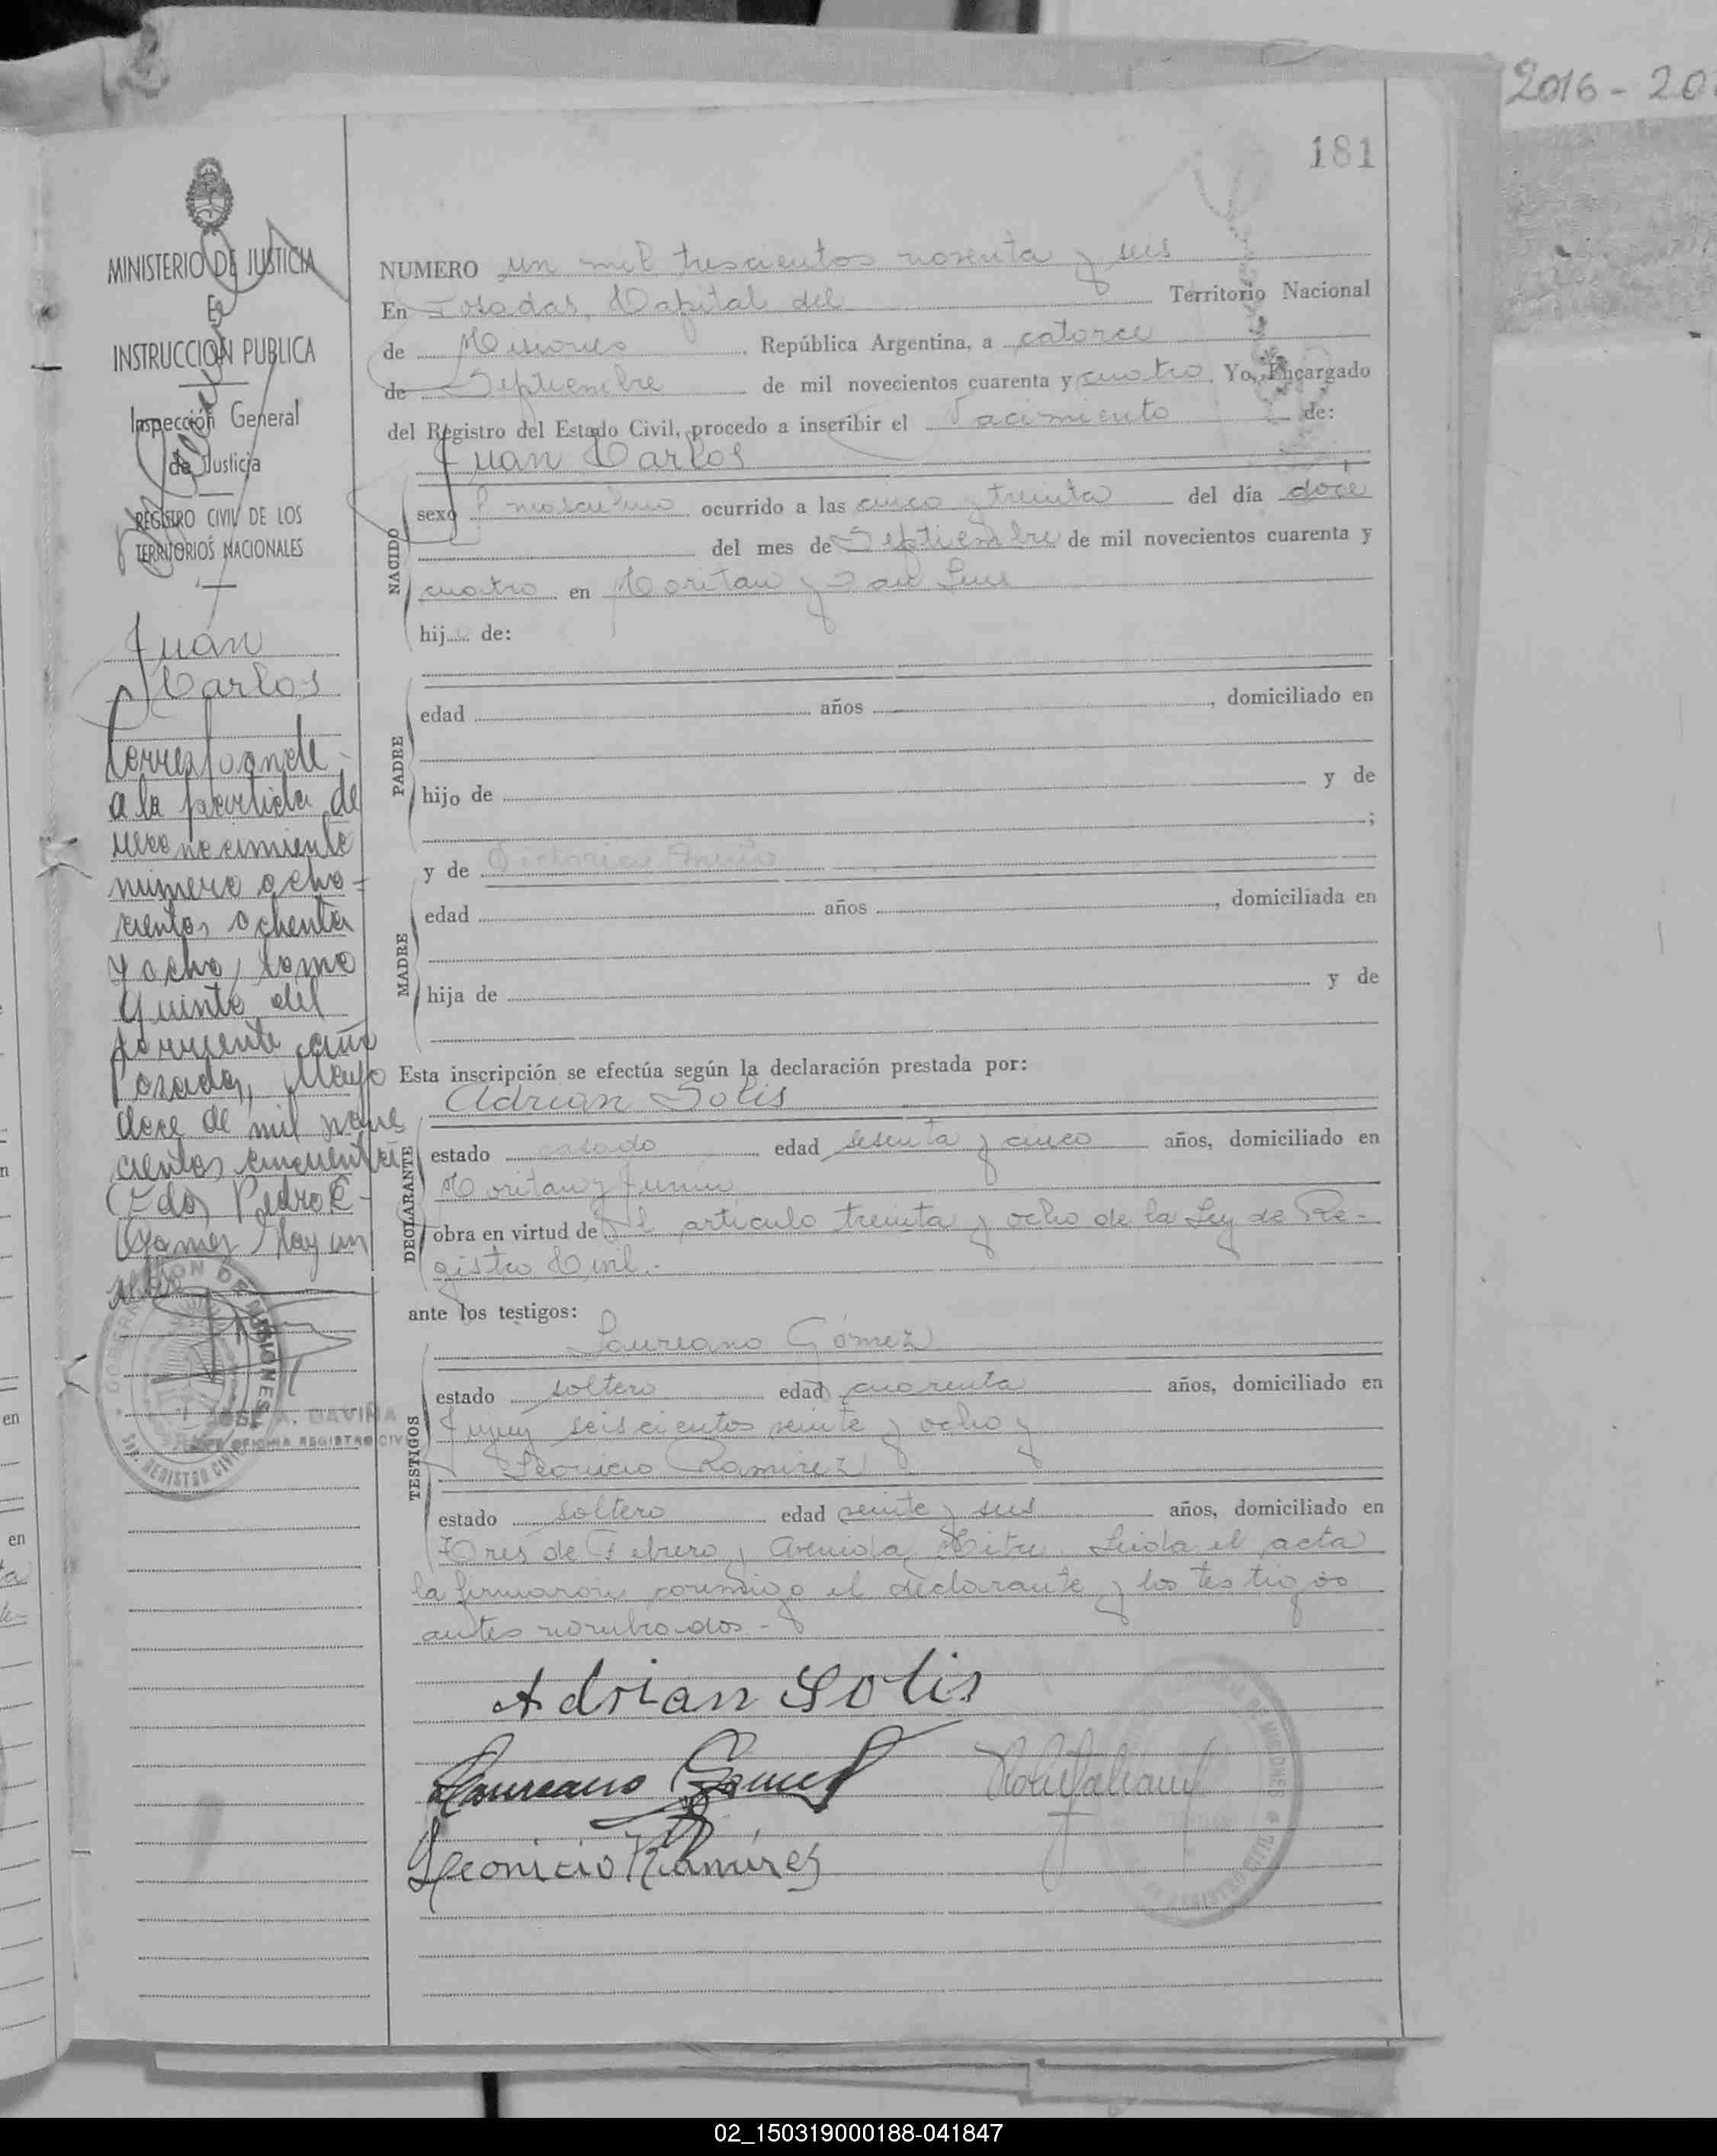 2016-20
181
MINISTERIO DE JUSTICIA
E
INSTRUCCION PUBLICA
Inspección General
de Justicia
REGISTRO CIVIL DE LOS
TERRITORIOS NACIONALES
Juan
Carlos
Corresponde
a la partida de
reconocimiento
número ocho-
cientos ochenta
y ocho, tomo
quinto del
corriente año
Posadas, Mayo
doce de mil nove
cientos cincuenta
Fdo, Pedro E.
Gomez Hay un
sello
JOSE A. DAVIÑA
JEFE OFICINA REGISTRO CIVIL
NUMERO un mil trescientos noventa y seis
En Posadas, Capital del Territorio Nacional
de Misiones República Argentina, a catorce
de Septiembre de mil novecientos cuarenta y cuatro Yo, Encargado
del Registro del Estado Civil, procedo a inscribir el Nacimiento de:
Juan Carlos
NACIDO
sexo masculino ocurrido a las cinco y treinta del día doce
del mes de Septiembre de mil novecientos cuarenta y
cuatro en Moritan y San Luis
hij de:
PADRE
edad años , domiciliado en
hijo de y de
;
y de Victoria
MADRE
edad años , domiciliada en
hija de y de
Esta inscripción se efectúa según la declaración prestada por:
Adrian Solis
DECLARANTE
estado casado edad sesenta y cinco años, domiciliado en
Moritan y Junin
obra en virtud de l artículo treinta y ocho de la Ley de Re-
gistro Civil.-
ante los testigos:
Laureano Gómez
TESTIGOS
estado soltero edad cuarenta años, domiciliado en
Jujuy seiscientos veinte y ocho y
Leonicio Ramirez
estado soltero edad veinte y seis años, domiciliado en
Tres de Febrero y Avenida Mitre. Leída el acta
la firmaron conmigo el declarante y los testigos
antes nombrados -
Adrian Solis
Laureano Gomez
Leonicio Ramírez
02_150319000188-041847